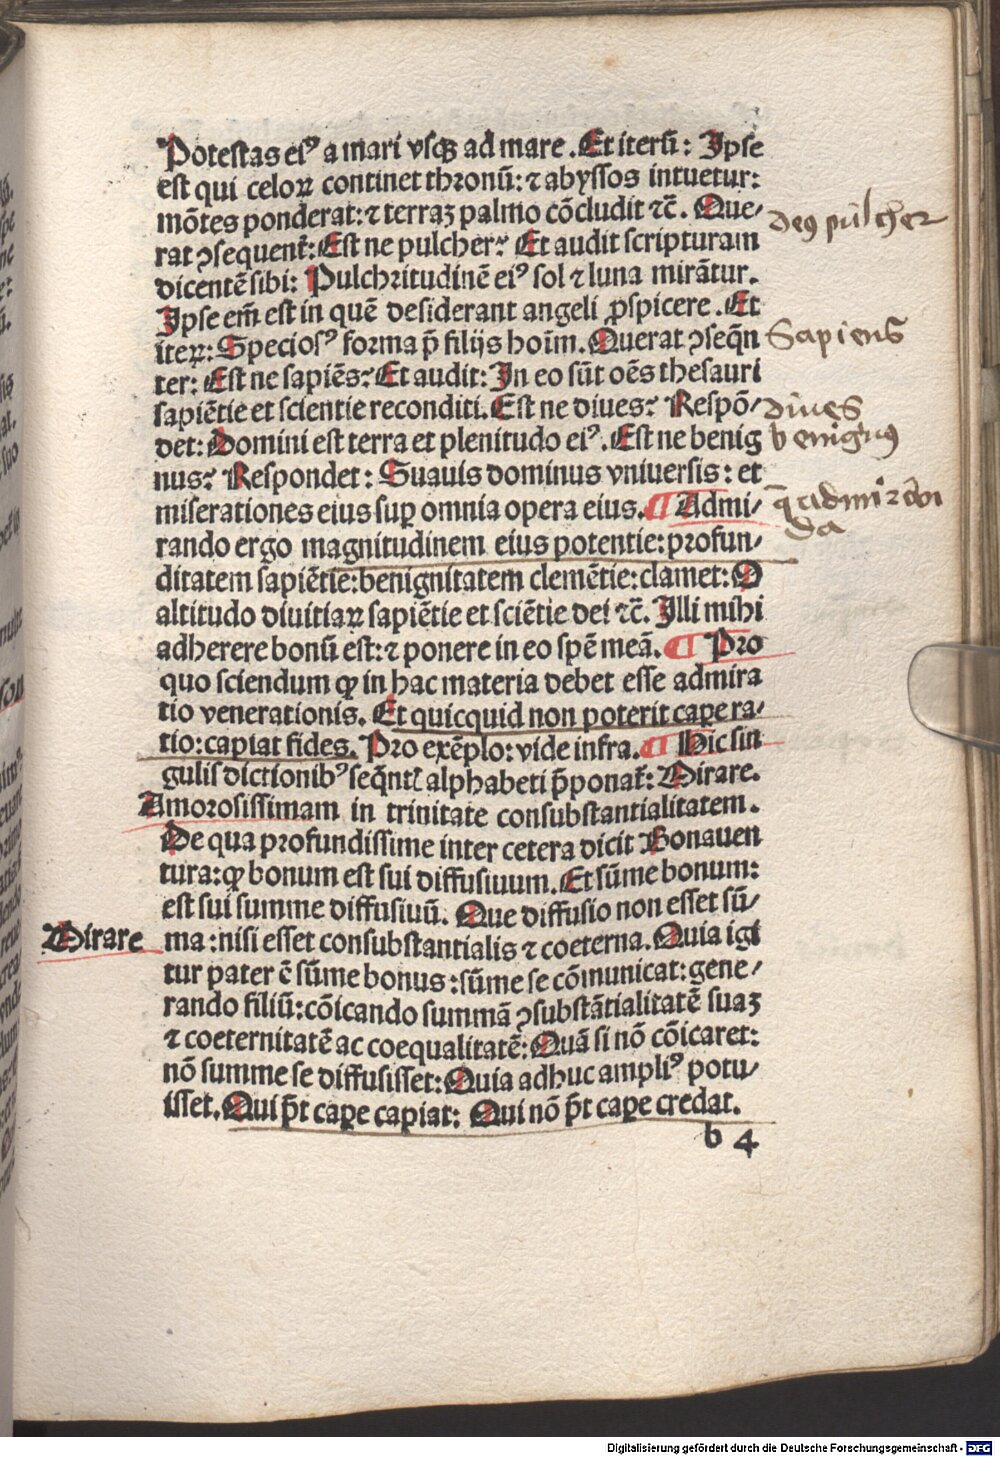 Potestas eiꝰ a mari vsqꝫ ad mare. Et iterū: Ipse
est qui celoꝝ continet thronū: ⁊ abyssos intuetur:
mōtes ponderat: ⁊ terraꝫ palmo cōcludit ⁊c̄. Que⸗
deꝰ pulcher
rat ꝯsequent̄: Est ne pulcher? Et audit scripturam
dicentē sibi: Pulchritudinē eiꝰ sol ⁊ luna mirātur.
Ipse em̄ est in quē desiderant angeli ꝓspicere. Et
iteꝝ: Speciosꝰ forma p̄ filijs hoīm. Querat ꝯseq̄n
Sapiens
ter: Est ne sapiēs? Et audit: In eo sūt oēs thesauri
sapiētie et scientie reconditi. Est ne diues? Respō⸗
diues
det: Domini est terra et plenitudo eiꝰ. Est ne benig
benignꝰ
nus? Respondet: Suauis dominus vniuersis: et
miserationes eius suꝑ omnia opera eius. ¶ Admi⸗
rando ergo magnitudinem eius potentie: profun⸗
ditatem sapiētie: benignitatem clemētie: clamet: O
altitudo diuitiaꝝ sapiētie et sciētie dei ⁊c̄. Illi mihi
adherere bonū est: ⁊ ponere in eo spē meā. ¶ Pro
quo sciendum ꝙ in hac materia debet esse admira
tio venerationis. Et quicquid non poterit caꝑe ra⸗
tio: capiat fides. Pro exēplo: vide infra. ¶ Hic sin
gulis dictionibꝰ seq̄ntꝭ alphabeti p̄ponat̄: Mirare.
Amorosissimam in trinitate consubstantialitatem.
De qua profundissime inter cetera dicit Bonauen
tura: ꝙ bonum est sui diffusiuum. Et sūme bonum:
est sui summe diffusiuū. Que diffusio non esset sū⸗
Mirare
ma: nisi esset consubstantialis ⁊ coeterna. Quia igi
tur pater ē sūme bonus: sūme se cōmunicat: gene⸗
rando filiū: cōicando summā ꝯsubstātialitatē suaꝫ
⁊ coeternitatē ac coequalitatē: Quā si nō cōicaret:
nō summe se diffusisset: Quia adhuc ampliꝰ potu⸗
isset. Qui p̄t caꝑe capiat: Qui nō p̄t caꝑe credat.
b 4
Digitalisierung gefördert durch die Deutsche Forschungsgemeinschaft - DFG